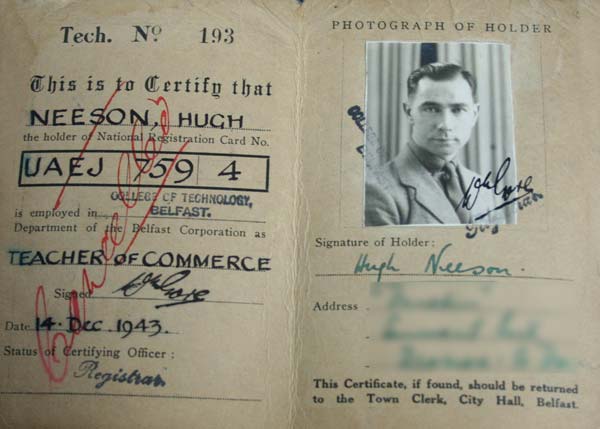 Tech. Nº 193
This is to Certify that
NEESON, HUGH
the holder of National Registration Card No.
UAEJ 759 4
COLLEGE OF TECHNOLOGY,
is employed in BELFAST.
Department of the Belfast Corporation as
TEACHER OF COMMERCE
Signed
Date 14. Dec. 1943.
Status of Certifying Officer :
Registrar
Cancelled
PHOTOGRAPH OF HOLDER
Signature of Holder :
Hugh Neeson.
Address
This Certificate, if found, should be returned
to the Town Clerk, City Hall, Belfast.